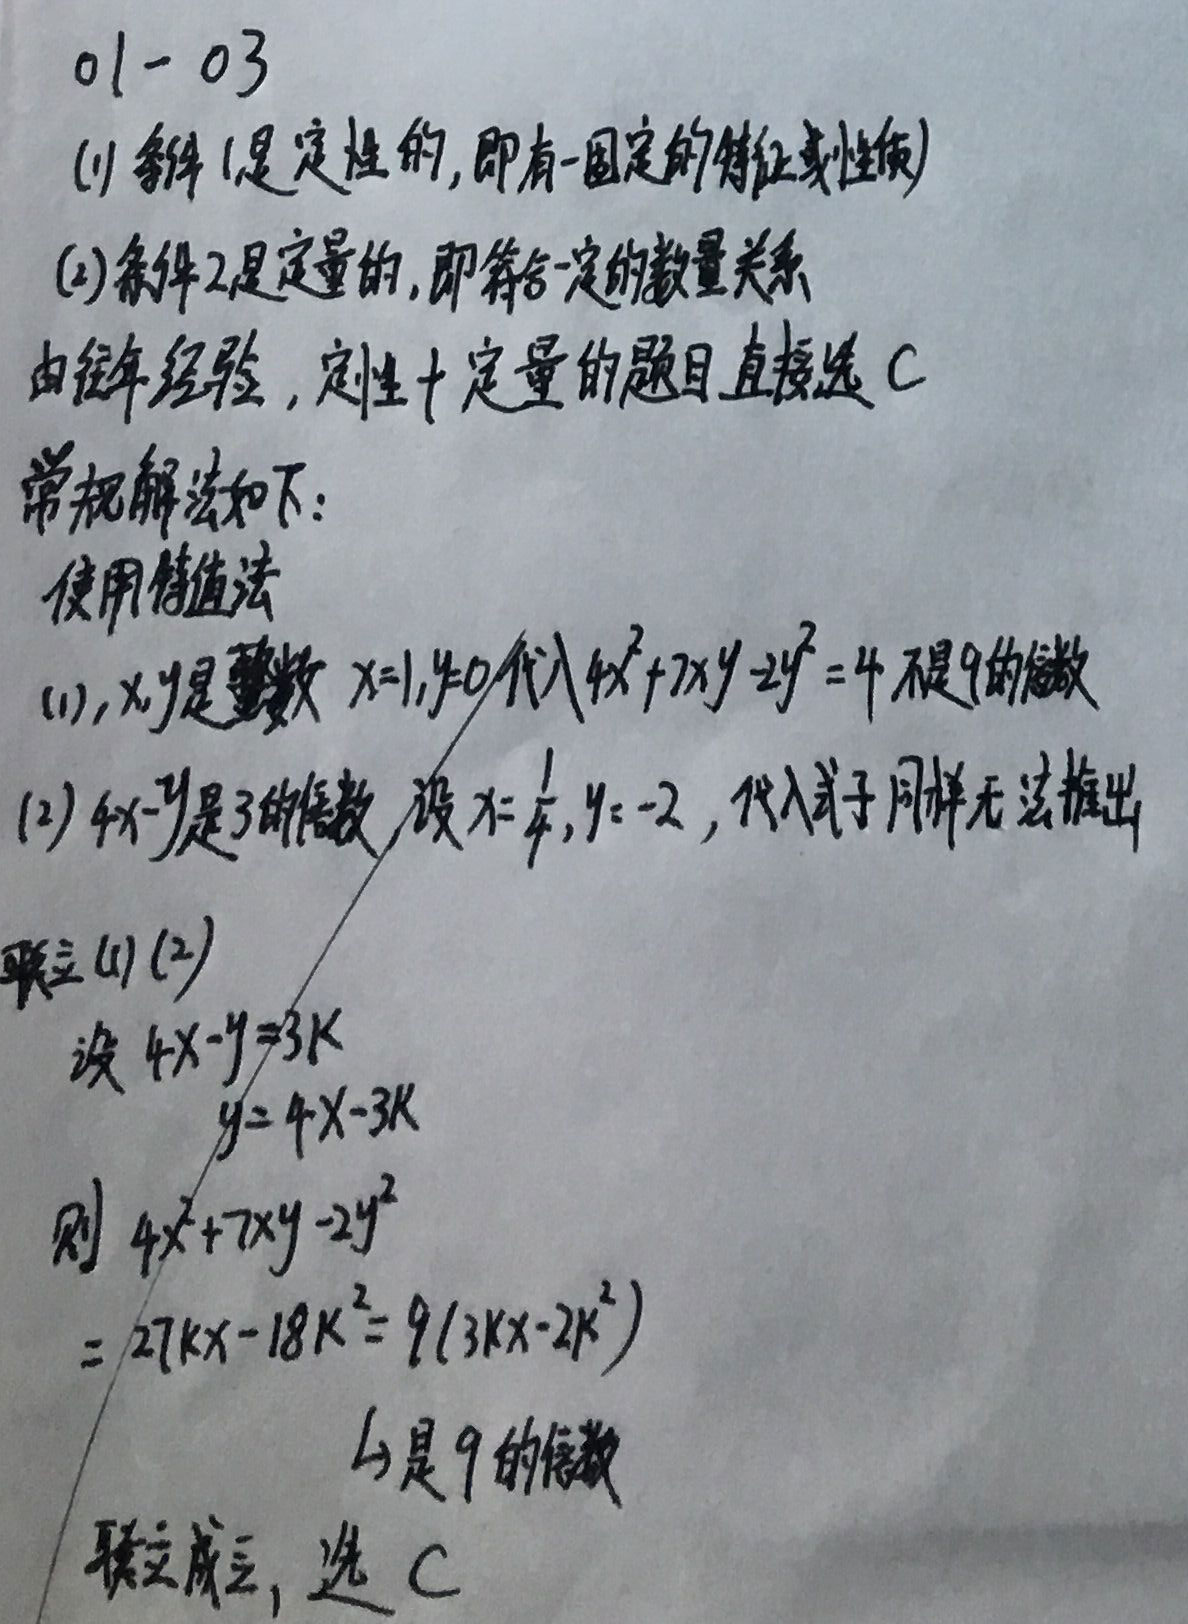 01-03
(1) 条件1是定性的,即有一固定的特征或性质)
(2)条件2是定量的,即符合一定的数量关系
由往年经验,定性+定量的题目直接选 C
常规解法如下:
使用特值法
(1),x,y是整数 x=1,y=0 代入 4x²+7xy-2y²=4 不是9的倍数
(2) 4x-y是3的倍数,设 x=1/4,y=-2,代入式子同样无法推出
联立(1)(2)
设 4x-y=3K
y=4x-3K
则 4x²+7xy-2y²
=27Kx-18K²=9(3Kx-2K²)
↳是9的倍数
联立成立,选 C